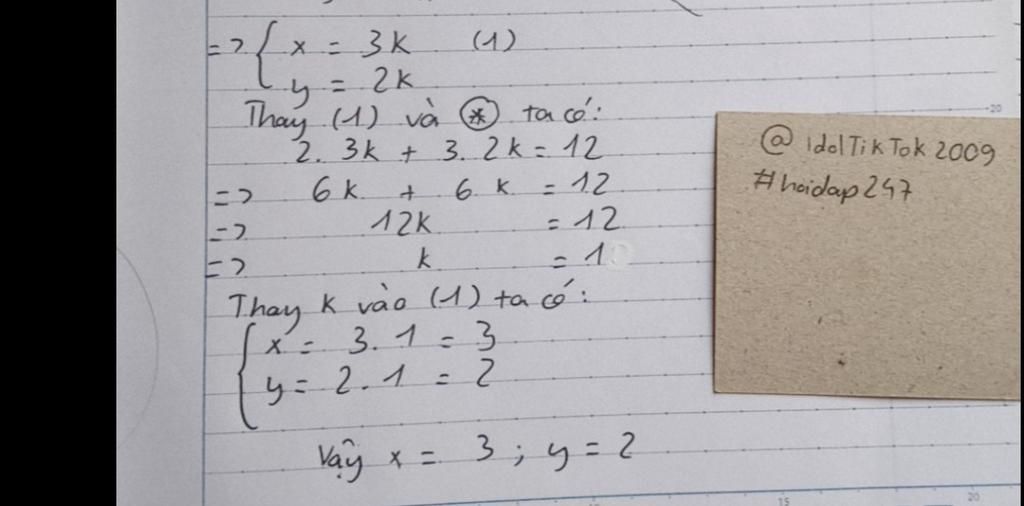 => { x = 3k (1)
y = 2k
Thay (1) và (*) ta có:
2. 3k + 3. 2k = 12
=> 6k + 6 k = 12
=> 12k = 12
=> k = 1
Thay k vào (1) ta có:
{ x = 3. 1 = 3
y = 2. 1 = 2
Vậy x = 3 ; y = 2
@ IdolTikTok2009
#hoidap247
20
15
20